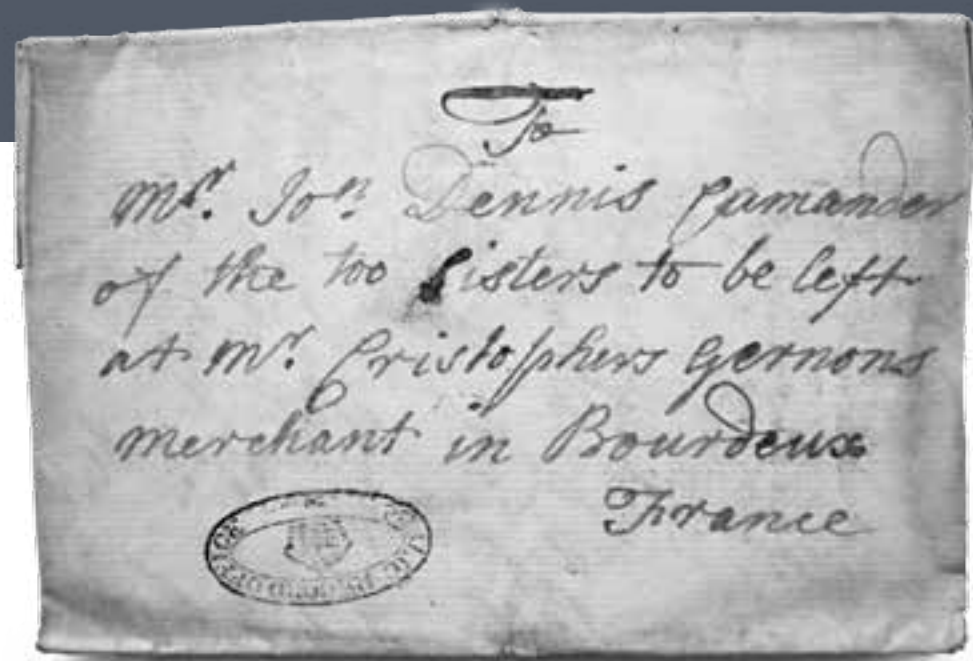 To
Mr. Jon. Dennis Camander
of the too Sisters to be left
at Mr. Cristophers Gernons
merchant in Bourdeux
France
PUBLIC RECORD OFFICE